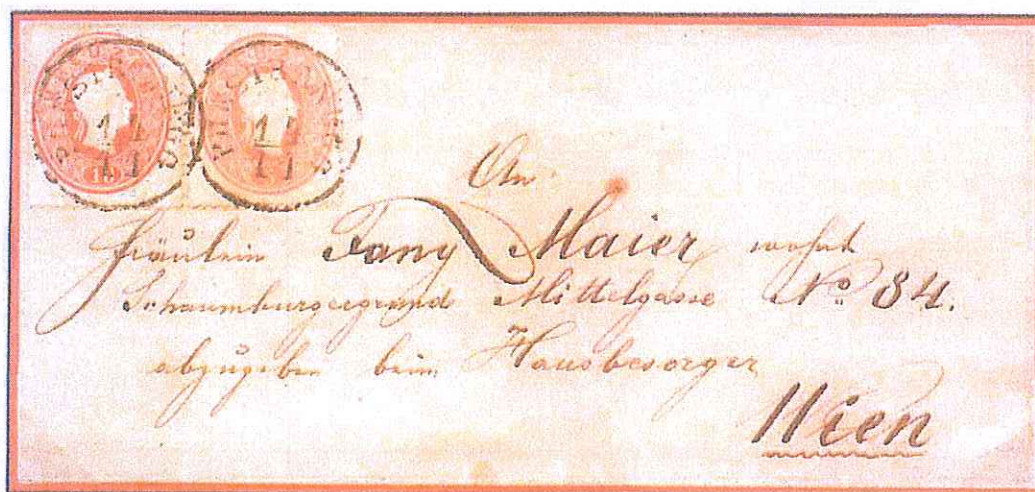 1/
11
1/
11
An
Fräulein Fany Maier wohnt
Schaumburgergrund Mittelgasse No 84.
abzugeben beim Hausbesorger
Wien